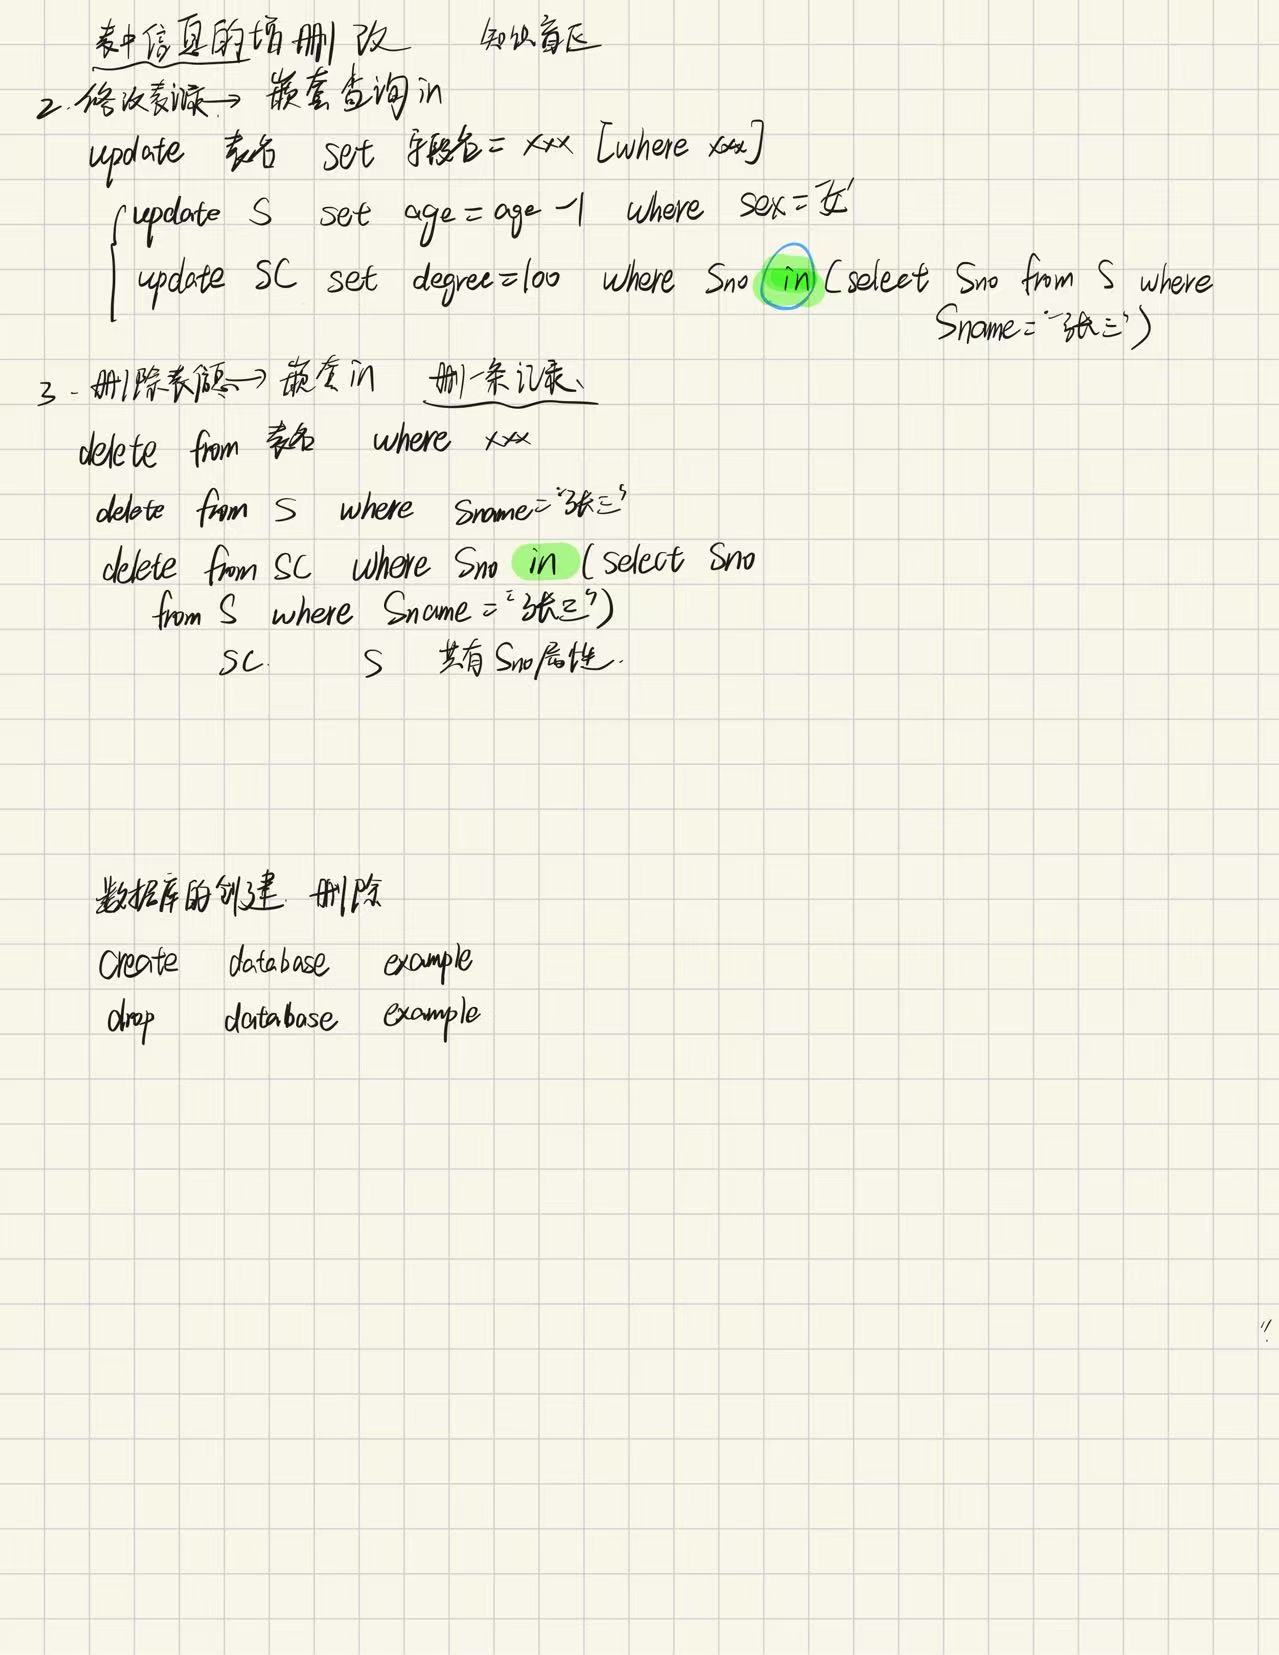 表中信息的增删改 知识盲区
2. 修改表记录→ 嵌套查询in
update 表名 set 字段名= xxx [where xxx]
update S set age=age-1 where sex='女'
update SC set degree=100 where Sno in (select Sno from S where
Sname='张三')
3. 删除表→ 嵌套in 删一条记录、
delete from 表名 where xxx
delete from S where Sname='张三'
delete from SC where Sno in (select Sno
from S where Sname='张三')
SC. S 共有Sno属性.
数据库的创建. 删除
create database example
drop database example